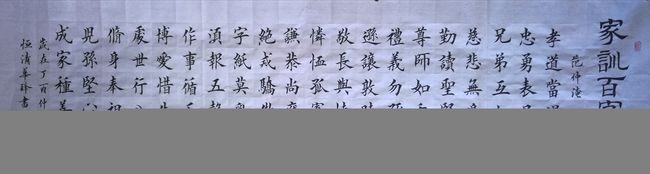 家訓百字
范仲淹
孝道當
忠勇表
兄弟互
慈悲無
勤讀聖
尊師如
禮義勿
遜讓敦
敬長與
憐恤孤
謙恭尚
絕戒驕
字紙莫
湏報五
作事循
博愛惜
處世行
脩身奉
兒孫堅
成家種
歲在丁酉仲
恒清華珍書